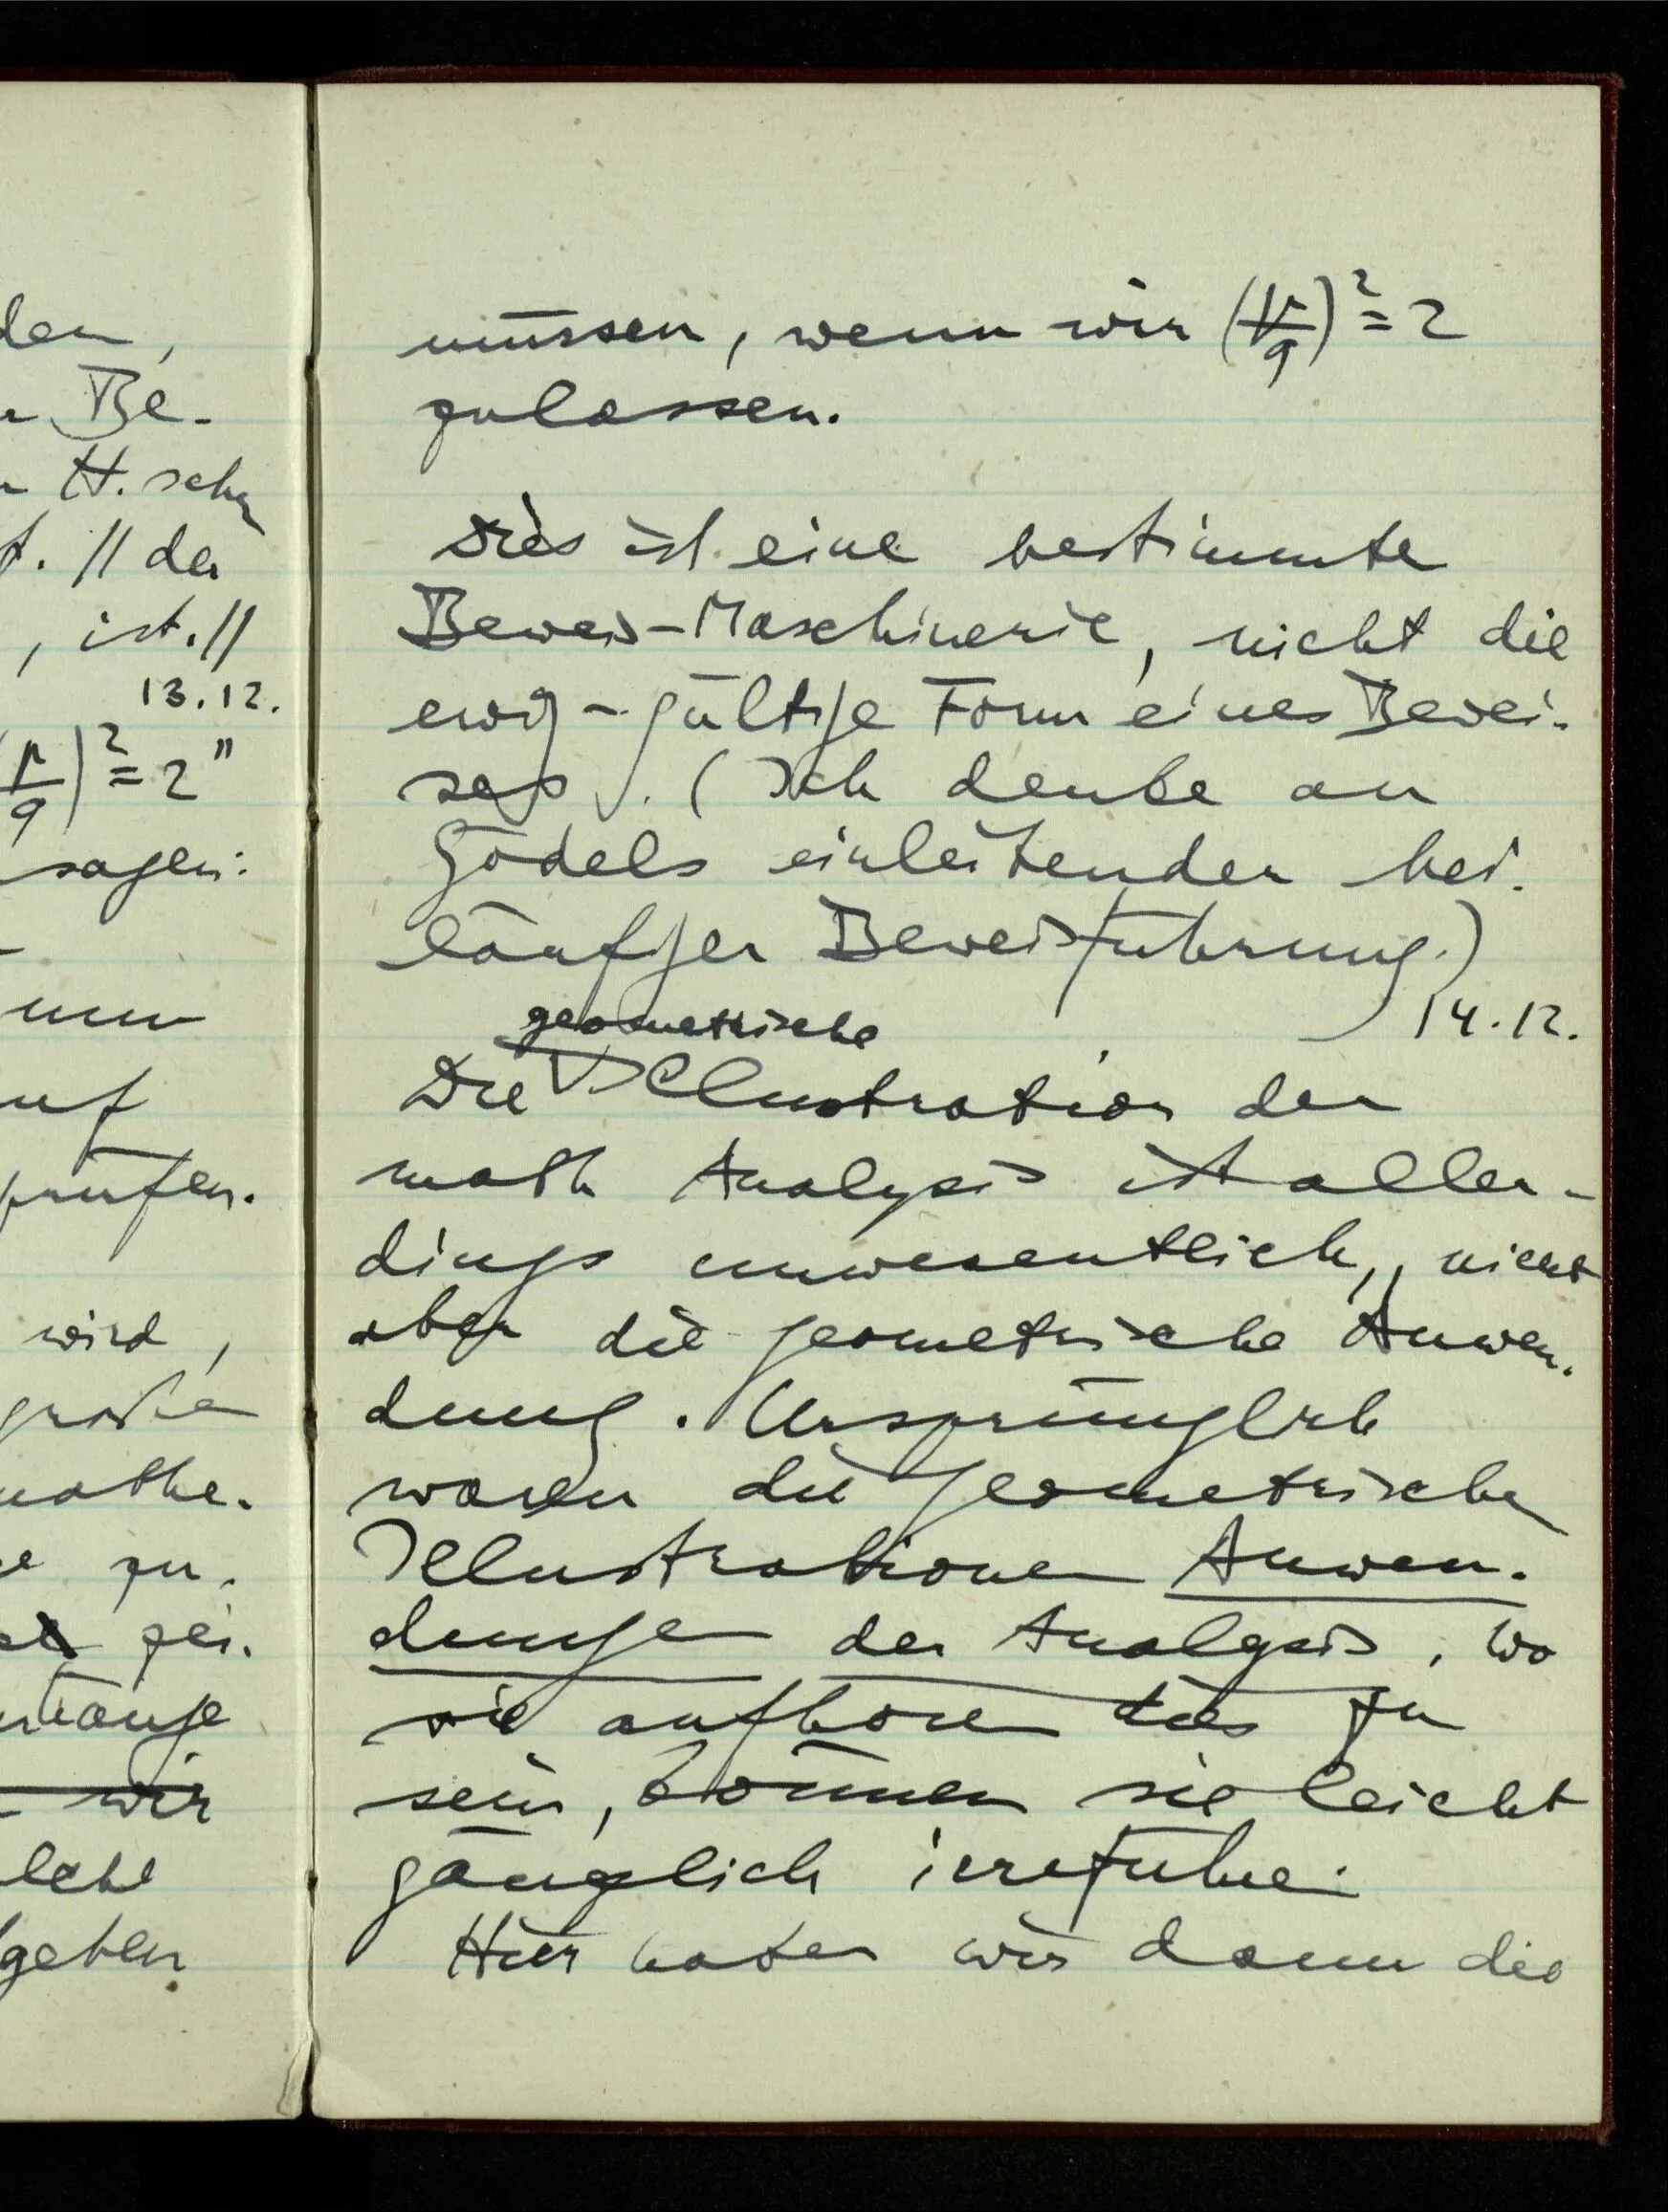 den,
Be-
H. sehr
t. // der
, ist. //
13.12.
(p/q)² = 2"
sagen:
nun
auf
prüfen.
wird,
große
mathe-
zu-
wir
geben
müssen, wenn wir (p/q)² = 2
zulassen.
Dies ist eine bestimmte
Beweis-Maschinerie, nicht die
ewig-gültige Form eines Bewei-
ses. (Ich denke an
Gödels einleitender bei-
läufiger Beweisführung.)
14.12.
geometrische
Die Illustration der
math Analysis ist aller-
dings unwesentlich, nicht
aber die geometrische Anwen-
dung. Ursprünglich
waren die geometrische
Illustrationen Anwen-
dungen der Analysis. Wo
sie aufhören dies zu
sein, können sie leicht
gänzlich irreführen.
Hier haben wir dann die